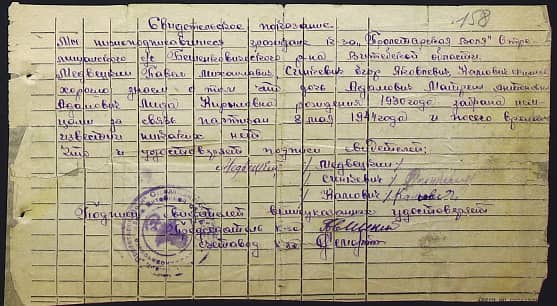 158
Свидетельское показание
Мы нижеподписавшиеся граждане к-за "Пролетарская Воля" Остро
Бешенковичского р-на Витебской области
Медвецкий Павел Михайлович Сенкевич Егор Яковлевич
хорошо знаем о том что дочь Адамович Матрены Антоновны
Адамович Лида Кирыловна рождения 1930года забрана нем
цами за связь партизан 8 мая 1944года и посего времени
известий никаких нет
Что и удостоверяет подписи свидетелей:
Медвецкий /Медвецкий/
Сенкевич
/
Подписи свидетелей вышуказаных удостоверяет
Председатель к-за
счетовод к-за